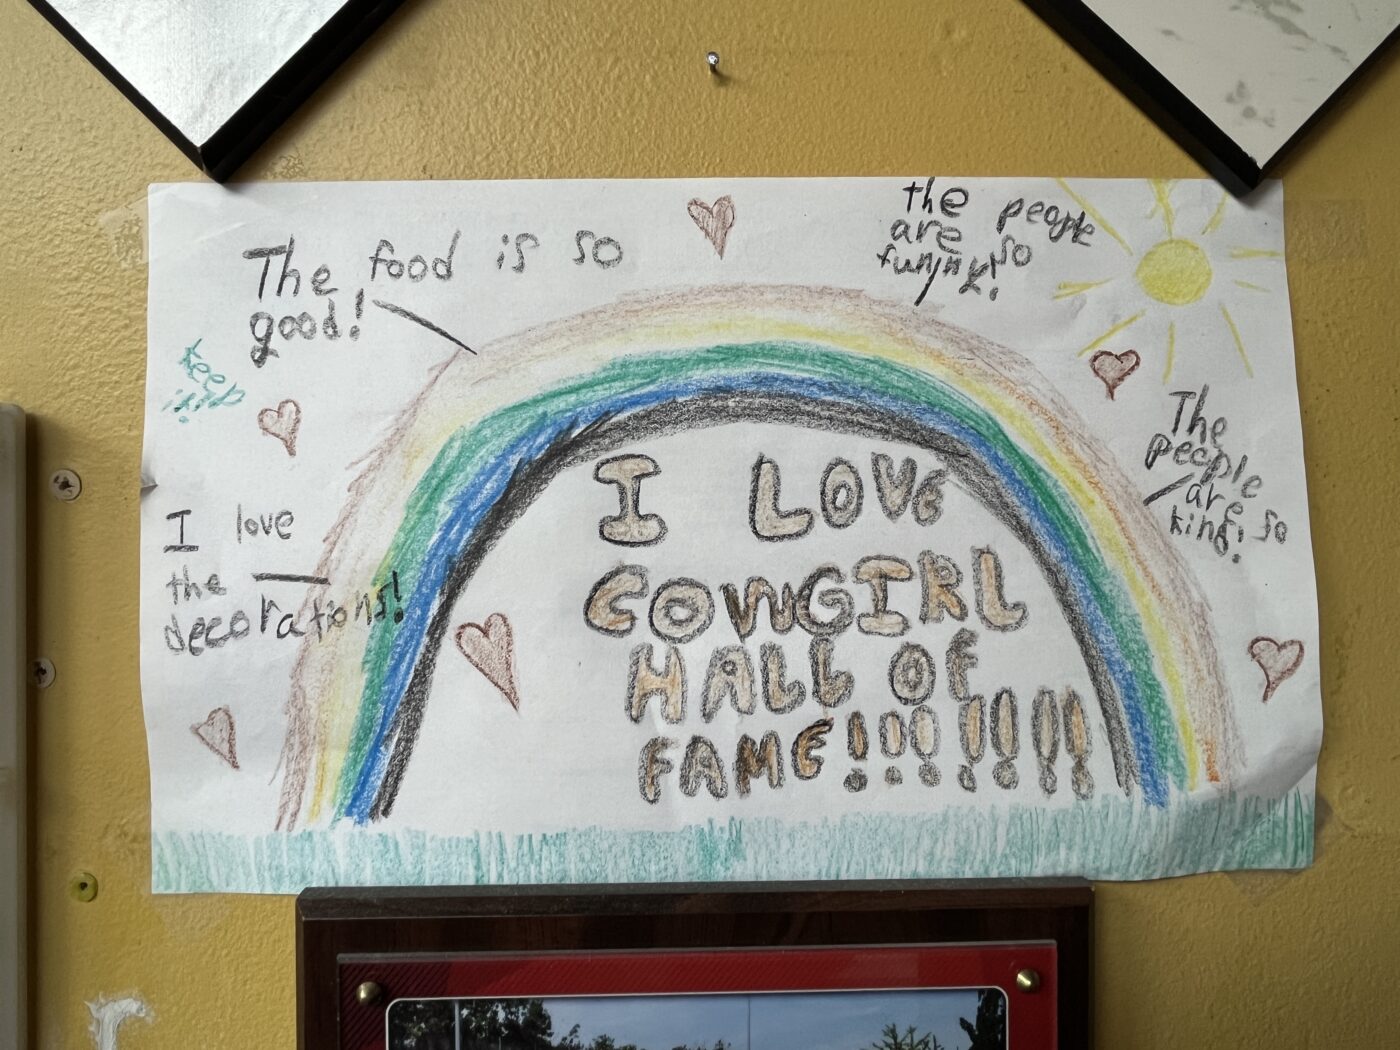 The food is so
good!
the people
are so
funjnk!
Keep
I love
the
decorations!
The
people
are so
kind!
I LOVE
COWGIRL
HALL OF
FAME!!!!!!!!